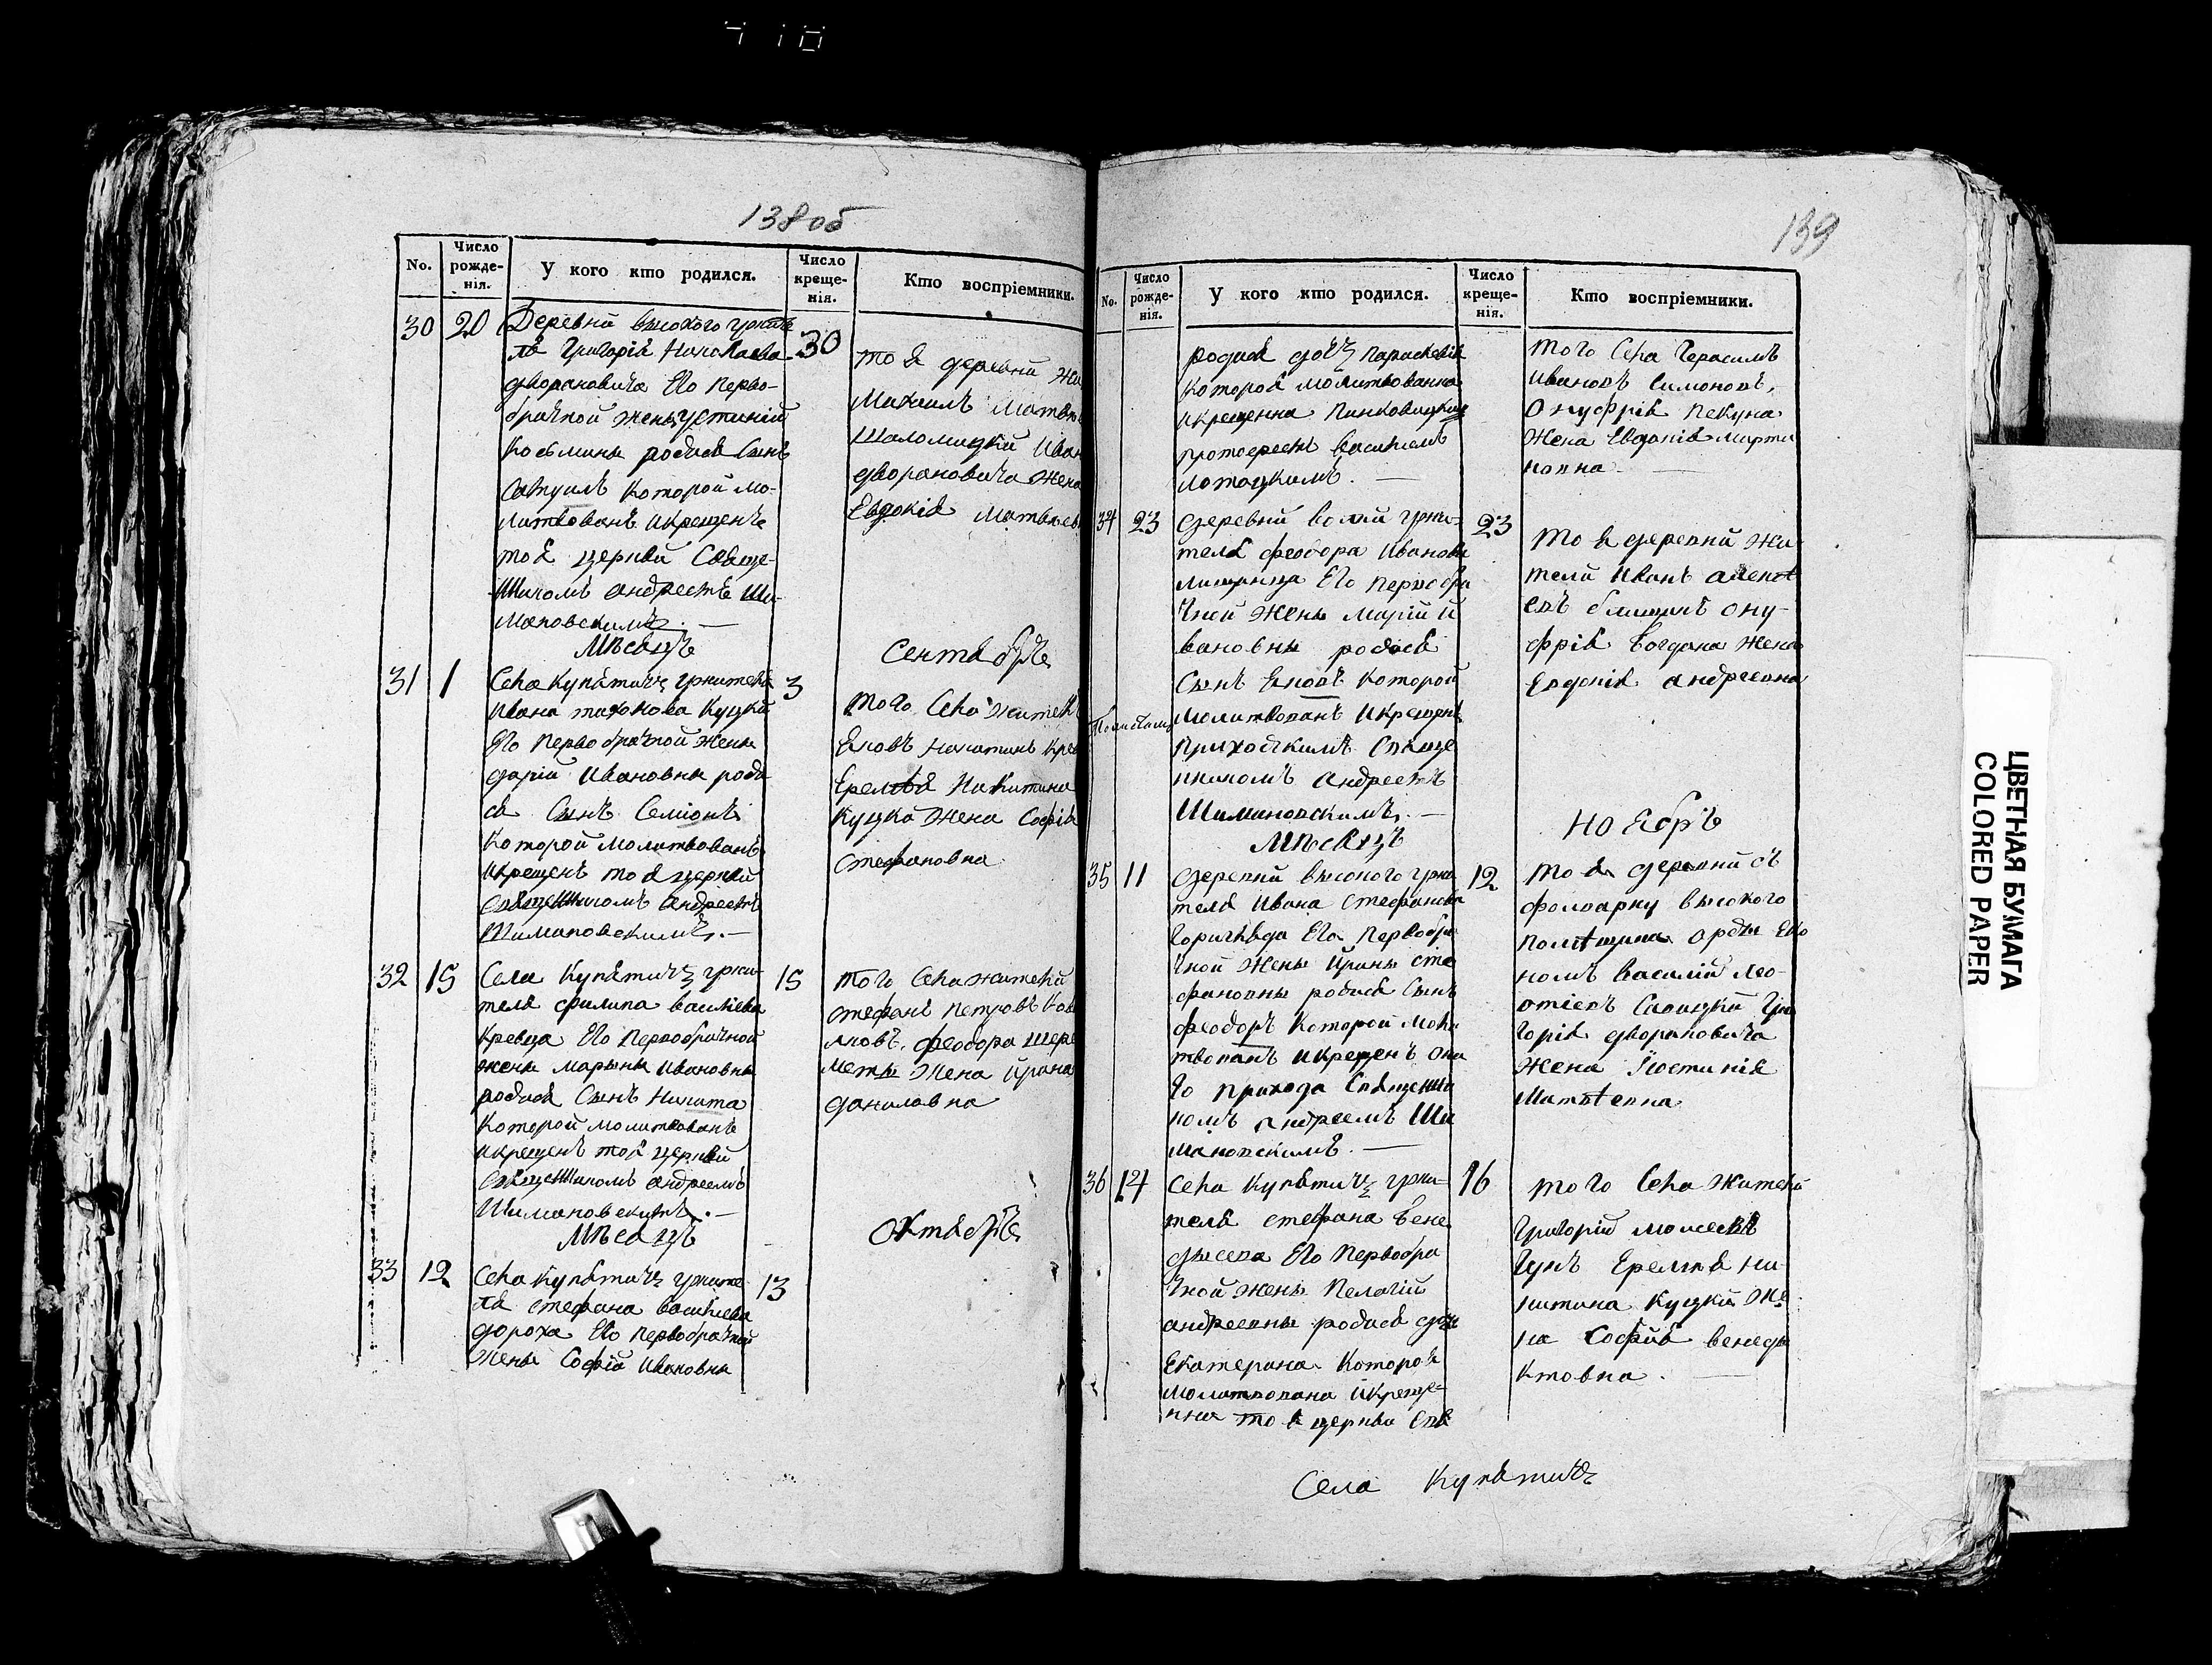 138об
No.
Число рожде-нія.
У кого кто родился.
Число креще-нія.
Кто воспріемники.
30 20
Деревни высокого ужите
ля Григорія Николаева
дворановича Его перво-
брачной жены Устиніи
Козьмины родися сынъ
Самуилъ которой мо-
литвованъ икрещенъ
тоя церкви Свяще-
нникомъ андреемъ Ши-
мановскимъ. —
30
тоя деревни жи
Михаилъ Матвѣ
Шоломицкій Иван
дворановича жена
Евдокія Матвѣев
Мѣсяцъ
Сентябрь
31 1
Села Купятичъ ужителя
Ивана тихонова Куцки
Его первобрачной жены
даріи Ивановны роди
ся сынъ Семіонъ
которой молитвованъ
икрещенъ тоя церкви
священникомъ андреемъ
Шимановскимъ. —
3
того села жители
Іаковъ никитинъ Крев
Еремѣя Никитина
Куцки жена Софія
стефановна
32 15
Села Купятичъ ужи-
теля филипа василіева
Кревца Его первобрачной
жены марыны ивановны
родися сынъ Никита
которой молитвованъ
икрещенъ тоя церкви
священникомъ андреемъ
Шимановскимъ. —
15
того села жители
стефанъ Петровъ Нов
ковъ. феодора шере
меты жена ирина
даниловна
Мѣсяцъ
Октябрь
33 12
Села Купятичъ ужите
ля стефана василіева
дороха Его первобрачной
жены Софіи Ивановны
13
139
No.
Число рожде-нія.
У кого кто родился.
Число креще-нія.
Кто воспріемники.
родися дочь параскевія
которая молитвованна
икрещенна Пинковицким
протоереемъ василіемъ
лотоцкимъ. —
того села Герасимъ
ивановъ Симоновъ,
Онуфрія Пекуна
жена Евдокія марти
новна —
34 23
деревни волки ужи-
теля феодора Иванова
лищинца Его первобра
чной жены Маріи И
вановны родися
сынъ Іаковъ которой
молитвованъ икрещенъ
приходскимъ Свяще
нникомъ андреемъ
Шимановскимъ. —
23
тоя деревни жи-
тели Иванъ алексѣ
евъ блищикъ ону-
фрія богдана жена
Евдокія андреевна
Мѣсяцъ
Ноябрь
35 11
деревни высокого ужи
теля Ивана стефанова
Его первобра
чной жены Ирины сте
фановны родися сынъ
феодоръ которой моли
твованъ икрещенъ она
го прихода священни
комъ андреемъ Ши
мановскимъ. —
12
тоя деревни съ
фолварку высокого
эко
номъ василій лео-
нтіевъ Савицкій Гри
горія двоорановича
жена Іустинія
Матвѣевна
36 14
Села Купятичъ ужи-
теля стефана Вене
Его первобра
чной жены Пелагіи
андреевны родися дочь
Екатерина которая
молитвована икреще-
нна тоя церкви свя
16
того села жители
Григорій моисеевъ
Еремѣя ни-
китина Куцки же
на Софія венеди
ктовна. —
Села Купятичъ
ЦВЕТНАЯ БУМАГА
COLORED PAPER